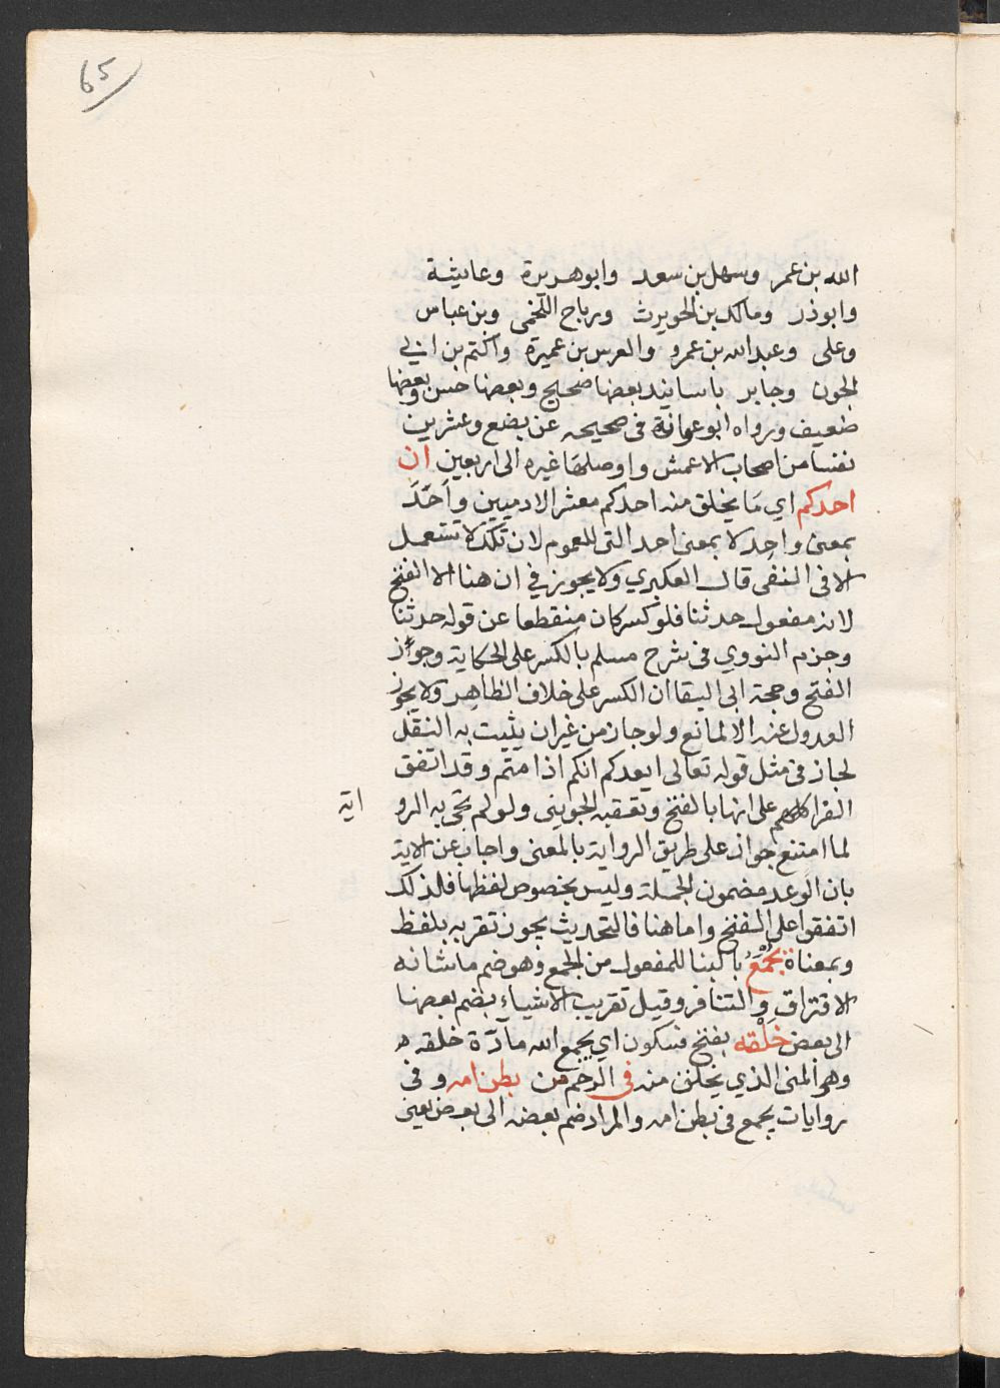 65
الله بن عمر وسهل بن سعد وابوهريرة وعايشة
وابوذر ومالك بن الحويرث ورباح اللخمى وبن عباس
وعلى وعبد الله بن عمرو والعرس بن عميرة واكتم بن ابي
الجون وجابر باسانيد بعضها صحيح وبعضها حسن وبعضها
ضعيف ورواه ابوعوانة فى صحيحه عن بضع وعشرين
نفسا من اصحاب الاعمش واوصلها غيره الى اربعين ان
احدكم اي ما يخلق منه احدكم معشر الادميين واحد
بمعنى واحد لا بمعنى احد التى للعموم لان تلك لا تستعمل
الا فى النفى قال العكبري ولا يجوز في ان هنا الا الفتح
لانه مفعول حدثنا فلو كسر كان منقطعا عن قوله حدثنا
وجزم النووي فى شرح مسلم بالكسر على الحكاية وجواز
الفتح وحجة ابى البقا ان الكسر على خلاف الظاهر ولا يجوز
العدول عنه الا لمانع ولو جاز من غير ان يثبت به النقل
لجاز فى مثل قوله تعالى ايعدكم انكم اذا متم وقد اتفق
القرا كلهم على انها بالفتح وتعقبه الجوينى ولو لم تجى به الرو اية
لما امتنع جوازه على طريق الرواية بالمعنى واجاب عن الاية
بان الوعد مضمون الجملة وليس بخصوص لفظها فلذلك
اتفقوا على الفتح واما هنا فالتحديث يجوز تقريره بلفظ
وبمعناة يجمع بالبنا للمفعول من الجمع وهو ضم ما شانه
الافتراق والتنافر وقيل تقريب الاشياء بضم بعضها
الى بعض خلقه بفتح فسكون اي يجمع الله مادة خلقه
وهو المنى الذي يخلق منه فى الرحم من بطن امه وفى
روايات يجمع فى بطن امه والمراد ضم بعضه الى بعض يعنى